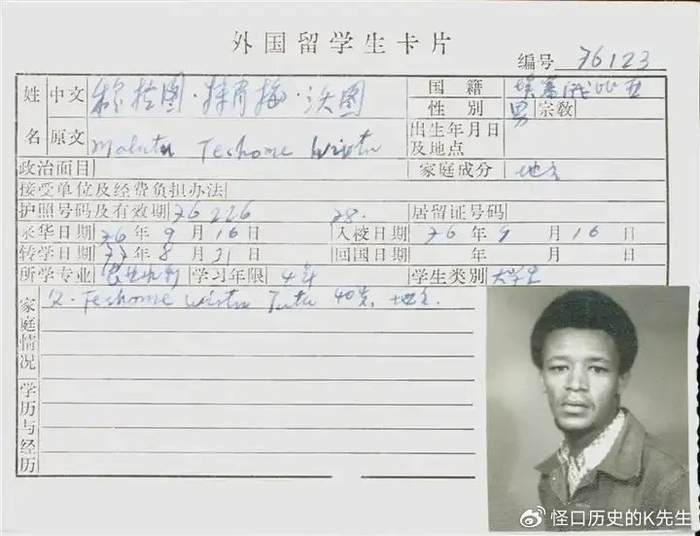 外国留学生卡片
编号 76123
姓名 中文 穆拉图·特肖梅·沃图 国籍 埃塞俄比亚
性别 男 宗教
原文 Mulatu Teshome Wirtu 出生年月日及地点
政治面目 家庭成分 地主
接受单位及经费负担办法
护照号码及有效期 76226 78. 居留证号码
来华日期 76年9月16日 入校日期 76年9月16日
转学日期 77年8月31日 回国日期 年 月 日
所学专业 学习年限 4年 学生类别 大学生
家庭情况 父. Teshome Wirtu 40岁, 地主.
学历与经历
怪口历史的K先生